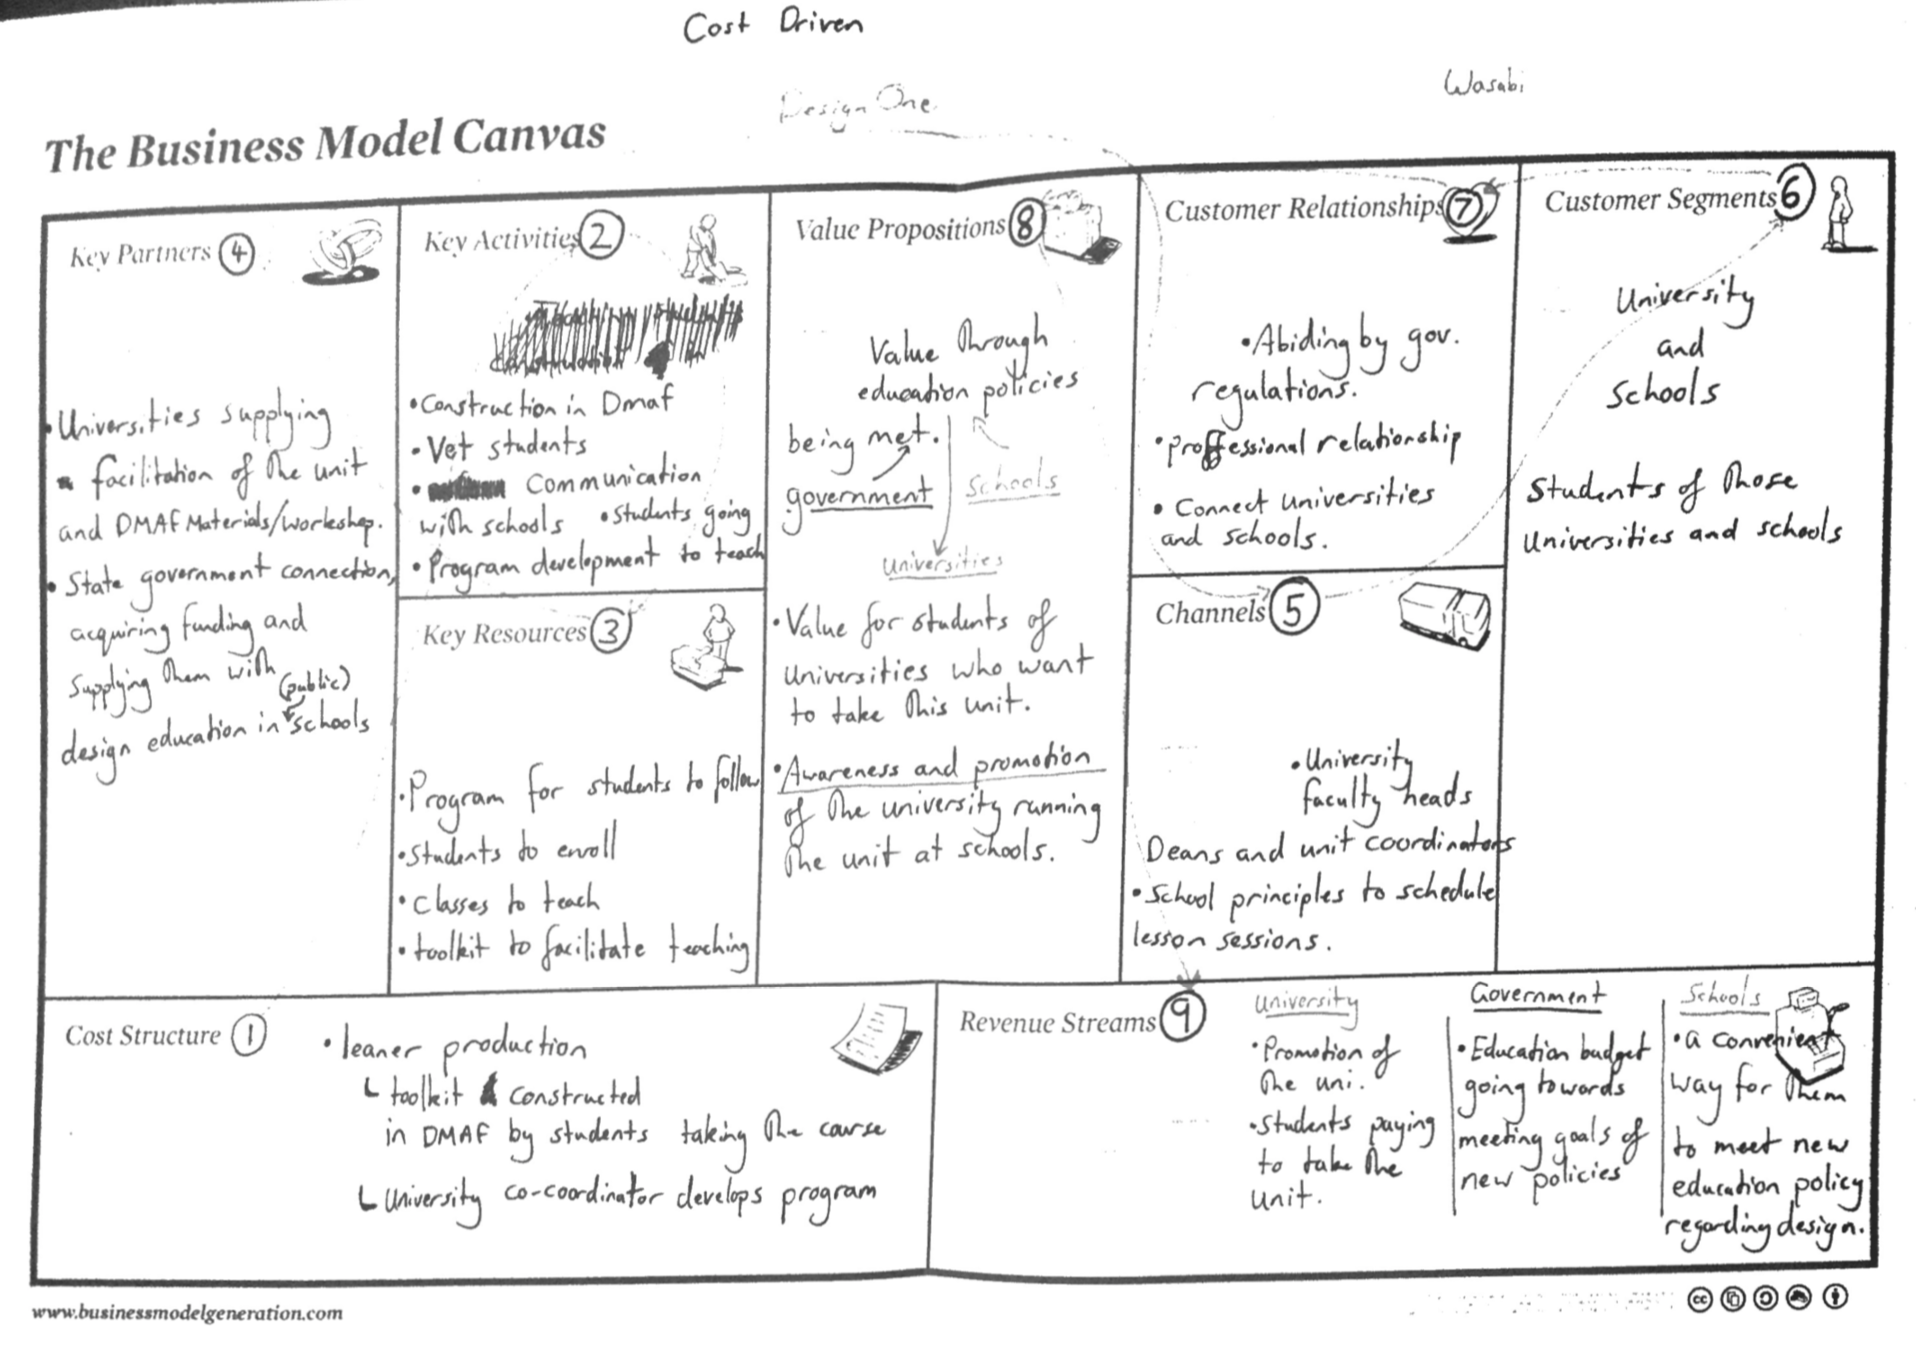 Cost Driven
Design One
Wasabi
The Business Model Canvas
Key Partners 4
• Universities supplying
facilitation of the unit
and DMAF Materials/workshop.
• State government connection,
acquiring funding and
supplying them with
(public)
design education in schools
Key Activities 2
• Construction in Dmaf
• Vet students
• Communication
with schools • Students going
• Program development to teach
Key Resources 3
• Program for students to follow
• Students to enroll
• Classes to teach
• toolkit to facilitate teaching
Value Propositions 8
Value through
education policies
being met.
government
Schools
Universities
• Value for students of
Universities who want
to take this unit.
• Awareness and promotion
of the university running
the unit at schools.
Customer Relationships 7
• Abiding by gov.
regulations.
• Proffessional relationship
• Connect universities
and schools.
Channels 5
• University
faculty heads
Deans and unit coordinators
• School principles to schedule
lesson sessions.
Customer Segments 6
University
and
Schools
Students of those
Universities and schools
Cost Structure 1
• leaner production
toolkit constructed
in DMAF by students taking the course
University co-coordinator develops program
Revenue Streams 9
University
• Promotion of
the uni.
• Students paying
to take the
unit.
Government
• Education budget
going towards
meeting goals of
new policies
Schools
• a convenient
way for them
to meet new
education policy
regarding design.
www.businessmodelgeneration.com
cc